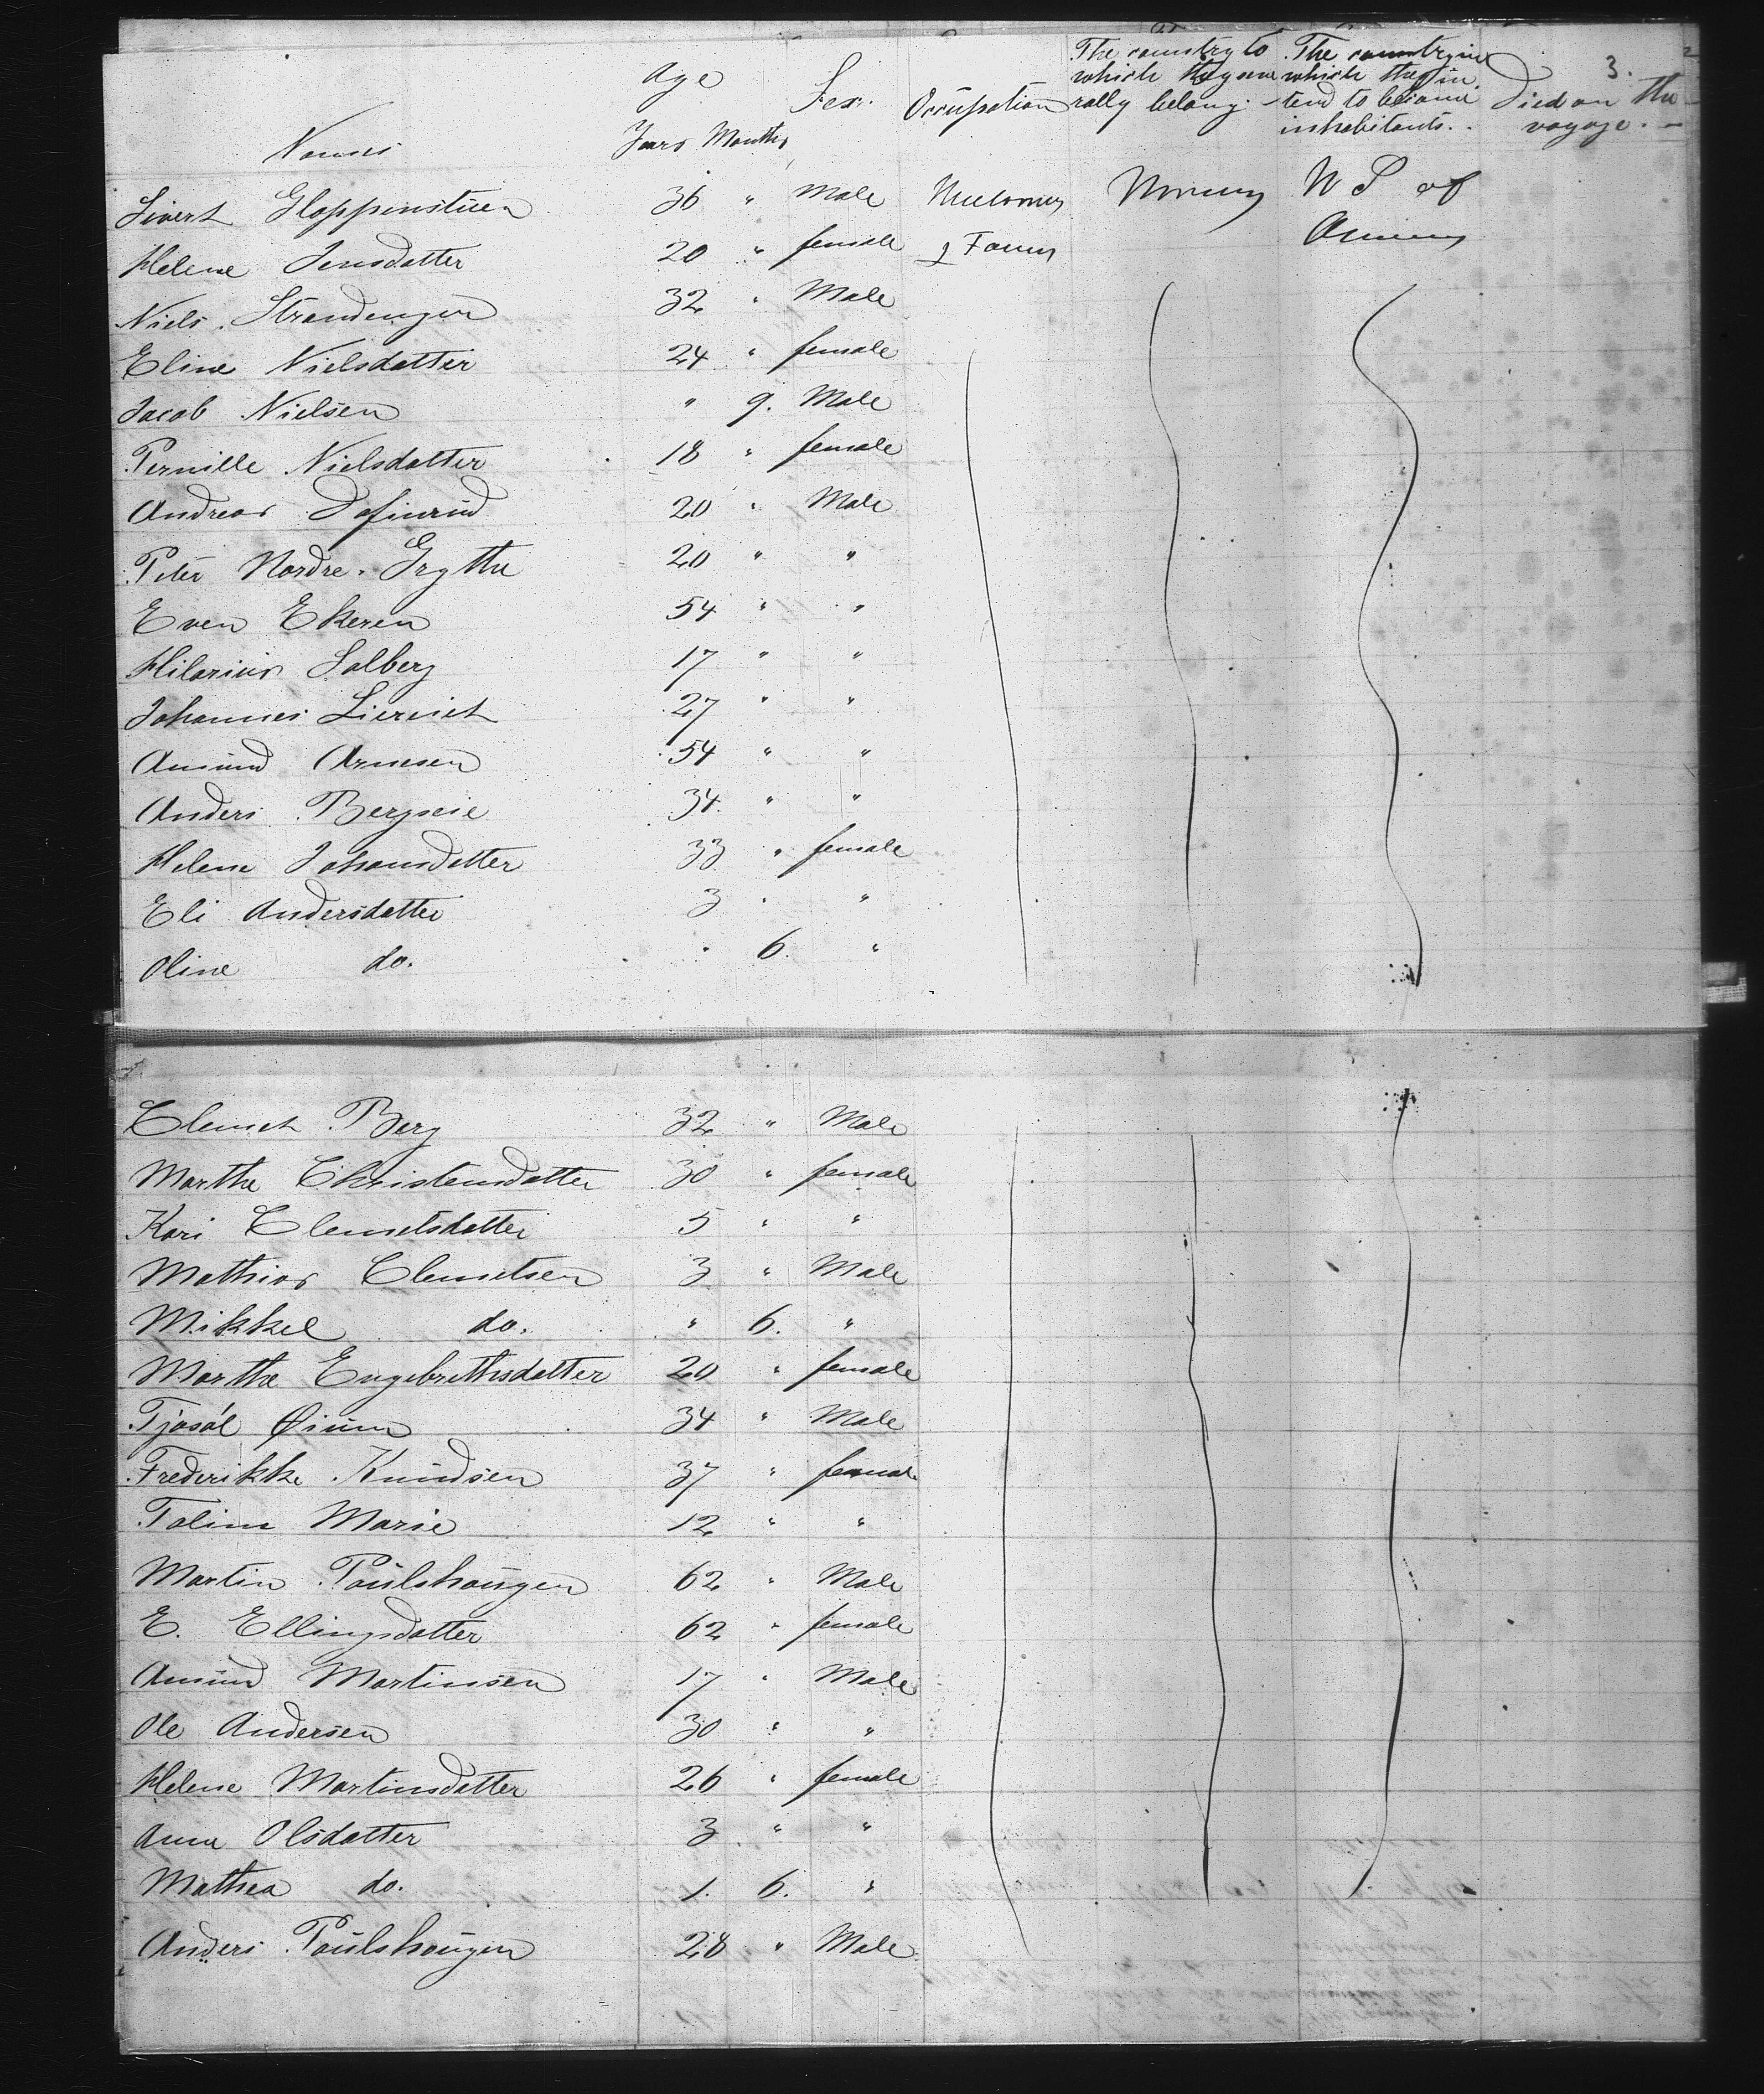 3.
Names Age Years Months Sex. Occupation The country to which they severally belong. The country in which they intend to become inhabitants. Died on the voyage.
Sivert Gloppenstuen 36 " Male Norway U S of
Helene Jensdatter 20 " female & Farmer America
Niels Strandengen 32 " Male
Eline Nielsdatter 24 " female
Jacob Nielsen " 9. Male
Pernille Nielsdatter 18 " female
Andreas 20 " Male
Peter Nordre Grythe 20 " "
Even Ekeren 54 " "
Hilarius Solberg 17 " "
Johannes 27 " "
Amund Arnesen 54 " "
Anders Bergseie 34. " "
Helene Johansdatter 33 " female
Eli Andersdatter 3 " "
Oline do. " 6. "
Clemet Berg 32 " Male
Marthe Christensdatter 30 " female
Kari Clemetsdatter 5 " "
Mathias Clemetsen 3 " Male
Mikkel do. " 6. "
Marthe Engebrethsdatter 20 " female
Tjosøl Øium 34 " Male
Frederikke Knudsen 37 " female
Taline Marie 12 " "
Martin Paulshaugen 62 " Male
E. Ellingsdatter 62 " female
Amund Martinsen 17 " Male
Ole Andersen 30 " "
Helene Martinsdatter 26 " female
Anne Olsdatter 3 " "
Mathea do. 1. 6. "
Anders Paulshaugen 28 " Male